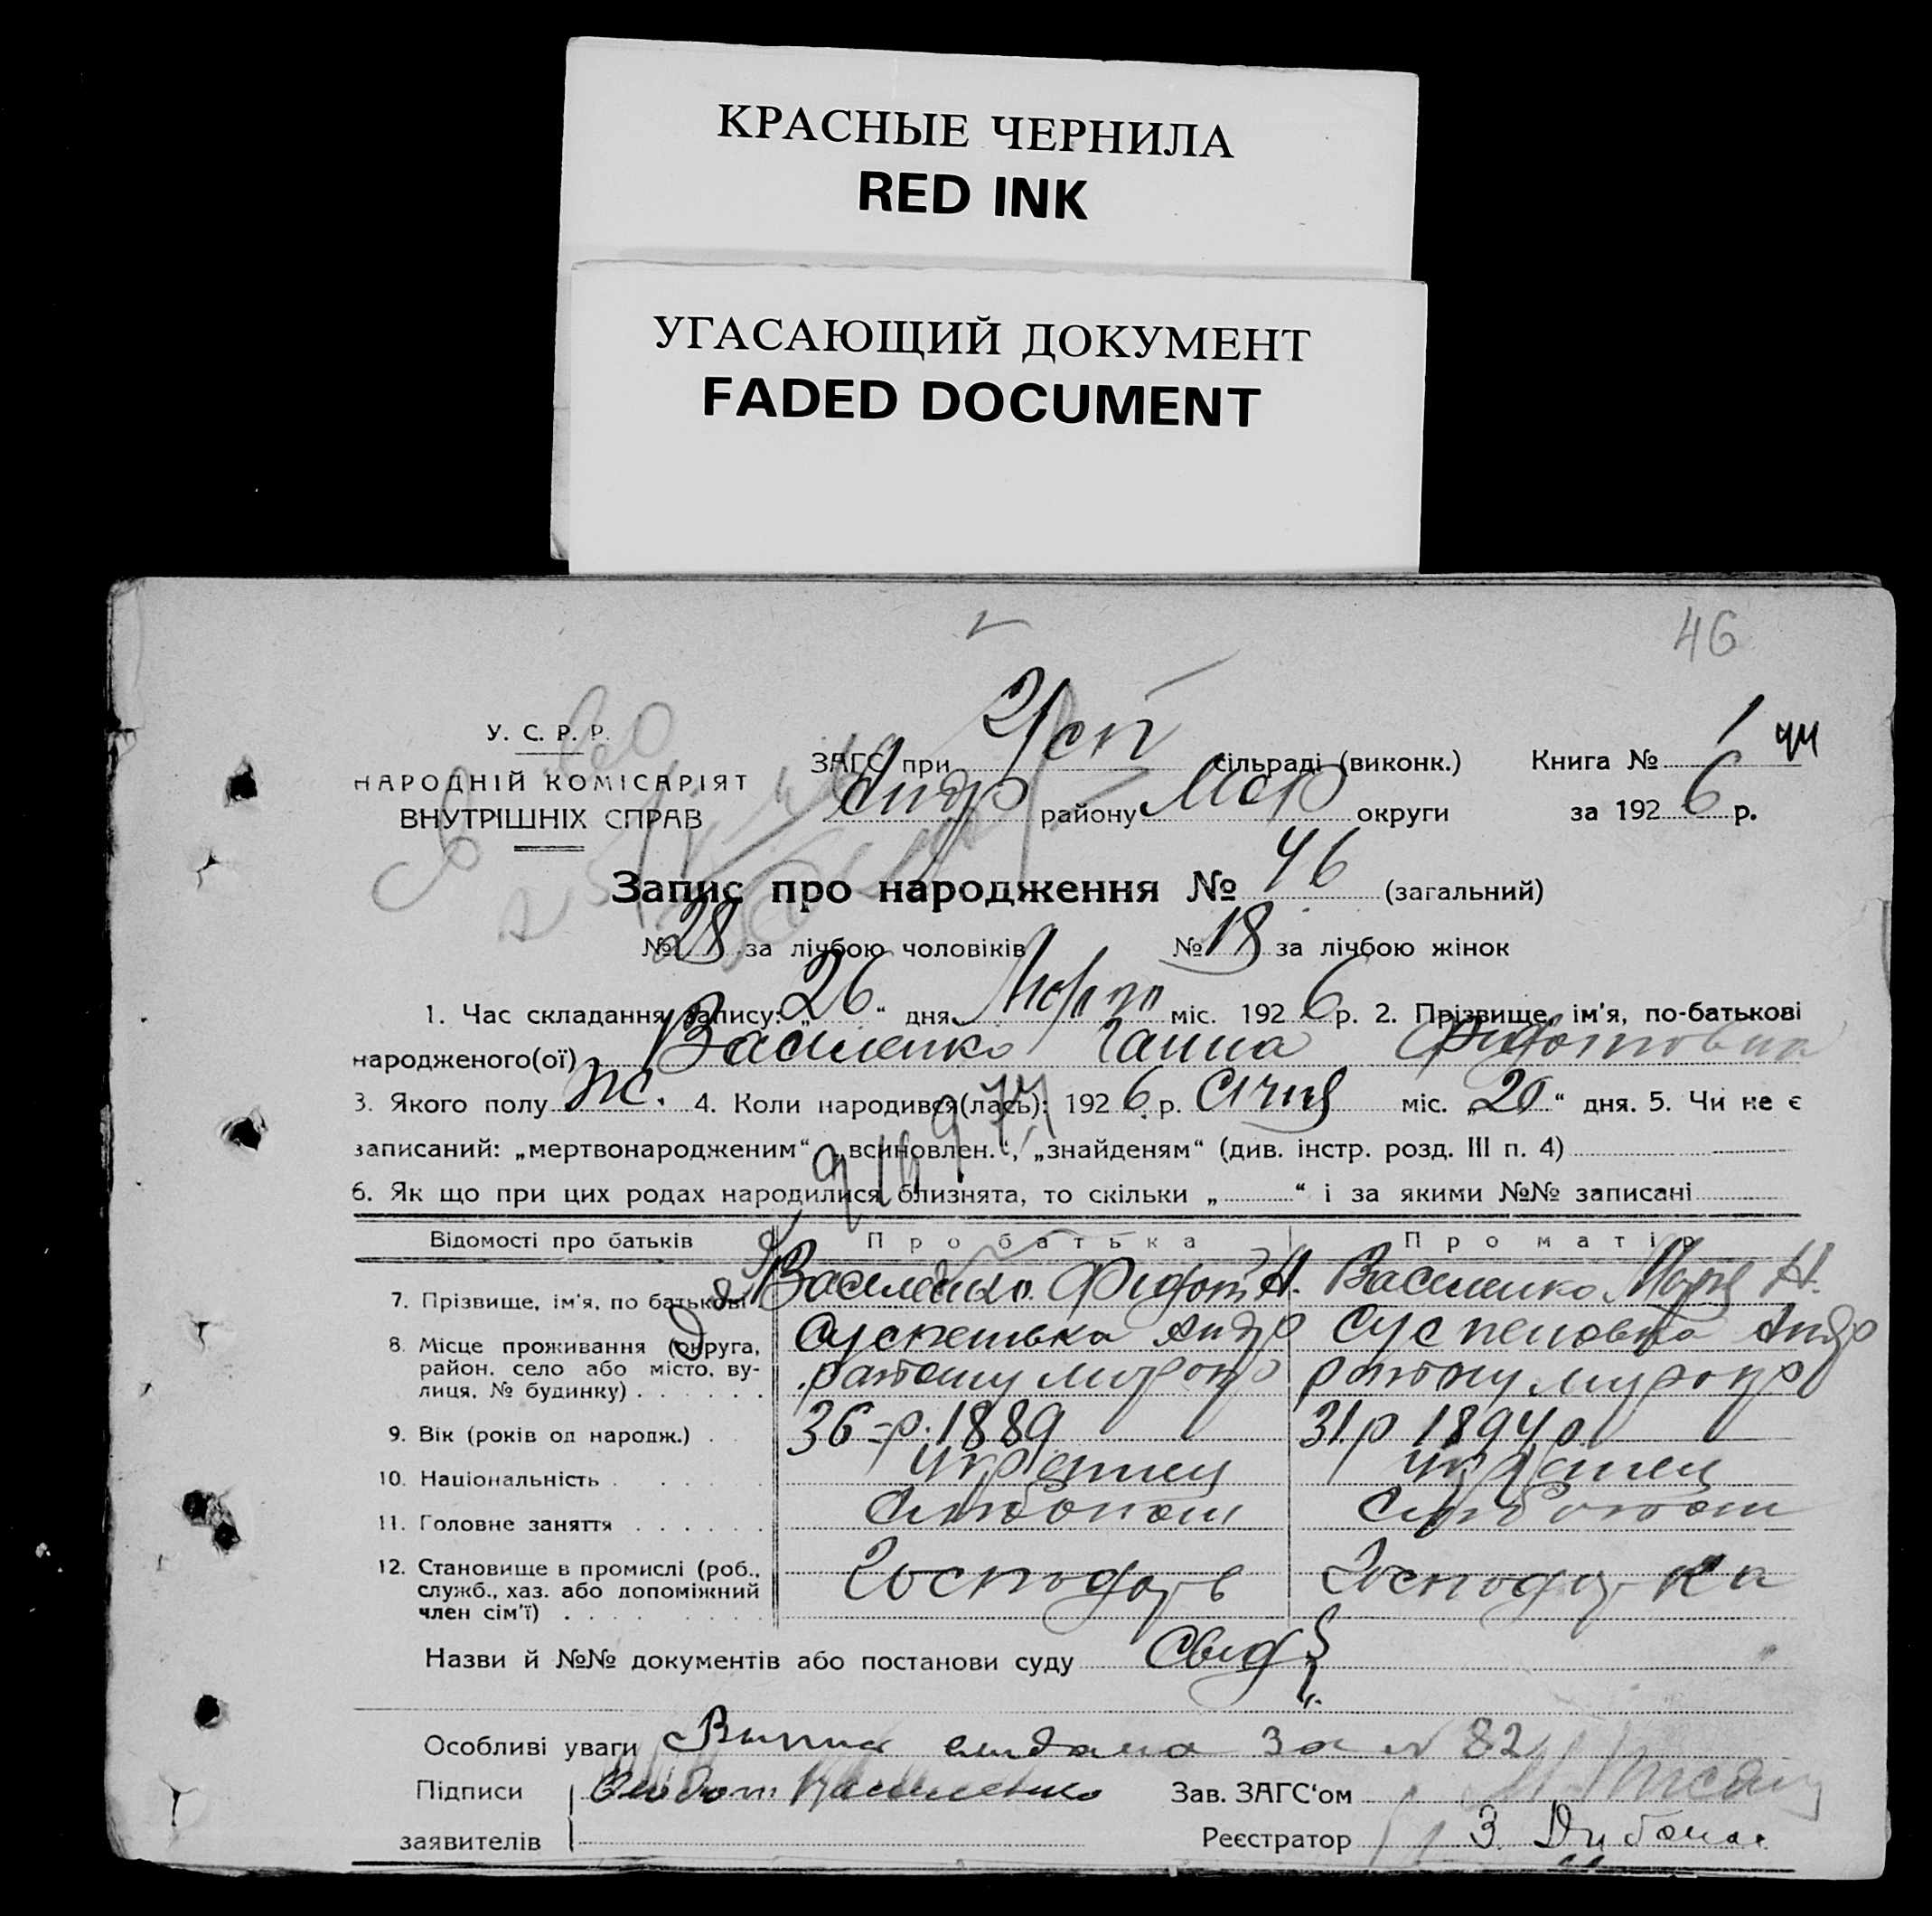 КРАСНЫЕ ЧЕРНИЛА
RED INK
УГАСАЮЩИЙ ДОКУМЕНТ
FADED DOCUMENT
46
У. С. Р. Р.
НАРОДНІЙ КОМІСАРІЯТ
ВНУТРІШНІХ СПРАВ
ЗАГС при сільраді (виконк.) Книга № 1 44
Андр району округи за 1926 р.
Запис про народження № 46 (загальний)
№ 28 за лічбою чоловіків № 18 за лічбою жінок
1. Час складання запису: „26“ дня міс. 1926 р. 2. Прізвище, ім'я, по-батькові
народженого(ої) Василенко Ганна Федотовна
3. Якого полу ж. 4. Коли народився(лась): 1926 р. Січня міс. „20“ дня. 5. Чи не є
записаний: „мертвонародженим“ „всиновлен.“, „знайденям“ (див. інстр. розд. III п. 4)
6. Як що при цих родах народилися близнята, то скільки „ “ і за якими №№ записані
Відомості про батьків Про батька Про матір
7. Прізвище, ім'я, по батькові Василенко Федот Н. Василенко Марія Н.
8. Місце проживання (округа, Андр Андр
район, село або місто, ву- району району
лиця, № будинку)
9. Вік (років од народж.) 36-р. 1889 31.р 1894 р
10. Національність Украінец Украінец
11. Головне заняття
12. Становище в промислі (роб., Господарь Господарка
служб., хаз. або допоміжний
член сім'ї)
Назви й №№ документів або постанови суду Свид
Особливі уваги видана за № 82
Підписи Федот Василенко Зав. ЗАГС'ом
заявителів Реєстратор З